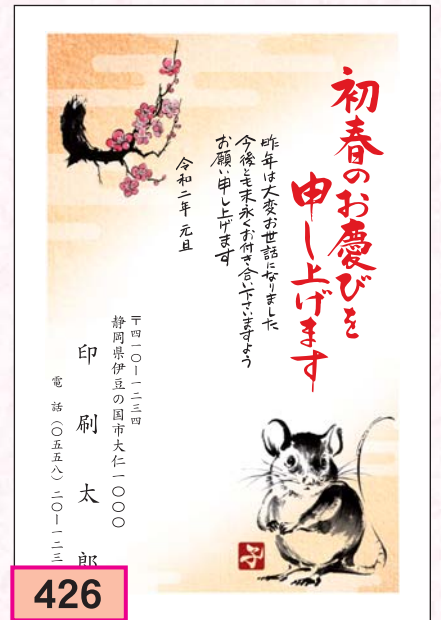 初春のお慶びを
申し上げます
昨年は大変お世話になりました
今後とも末永くお付き合い下さいますよう
お願い申し上げます
令和二年 元旦
〒四一〇ー一二三四
静岡県伊豆の国市大仁一〇〇〇
印刷太郎
電話(〇五五八)二〇ー一二三
子
426